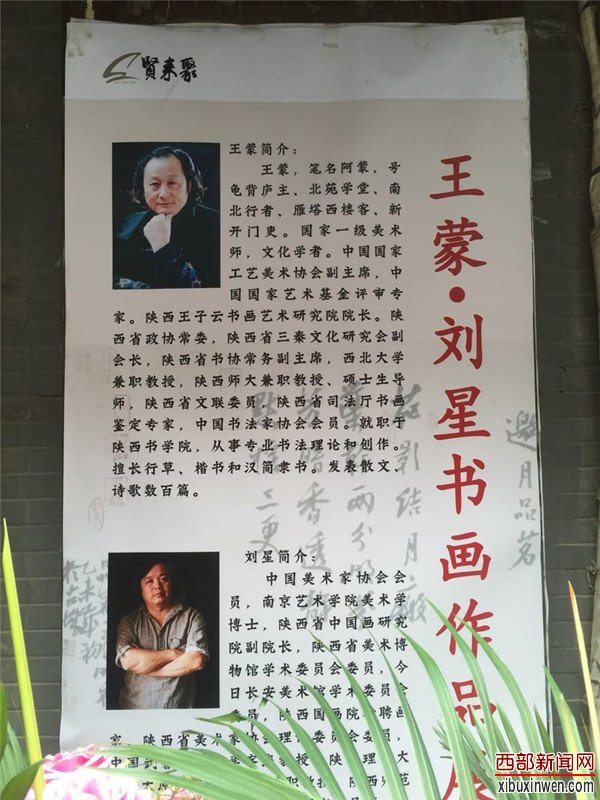 賢来聚
王蒙·刘星书画作品展
王蒙简介：
王蒙，笔名阿蒙，号
龟背庐主、北苑学堂、南
北行者、雁塔西楼客、新
开门吏。国家一级美术
师，文化学者。中国国家
工艺美术协会副主席，中
国国家艺术基金评审专
家。陕西王子云书画艺术研究院院长。陕
西省政协常委，陕西省三秦文化研究会副
会长，陕西省书协常务副主席，西北大学
兼职教授，陕西师大兼职教授、硕士生导
师，陕西省文联委员，陕西省司法厅书画
鉴定专家，中国书法家协会会员。就职于
陕西书学院，从事专业书法理论和创作。
擅长行草、楷书和汉简隶书。发表散文、
诗歌数百篇。
邀月品茗
刘星简介：
中国美术家协会会
员，南京艺术学院美术学
博士，陕西省中国画研究
院副院长，陕西省美术博
物馆学术委员会委员，今
日长安美术馆学术委员会
委员，陕西国画院特聘画
家，陕西省美术家协会理
西部新闻网
xibuxinwen.com